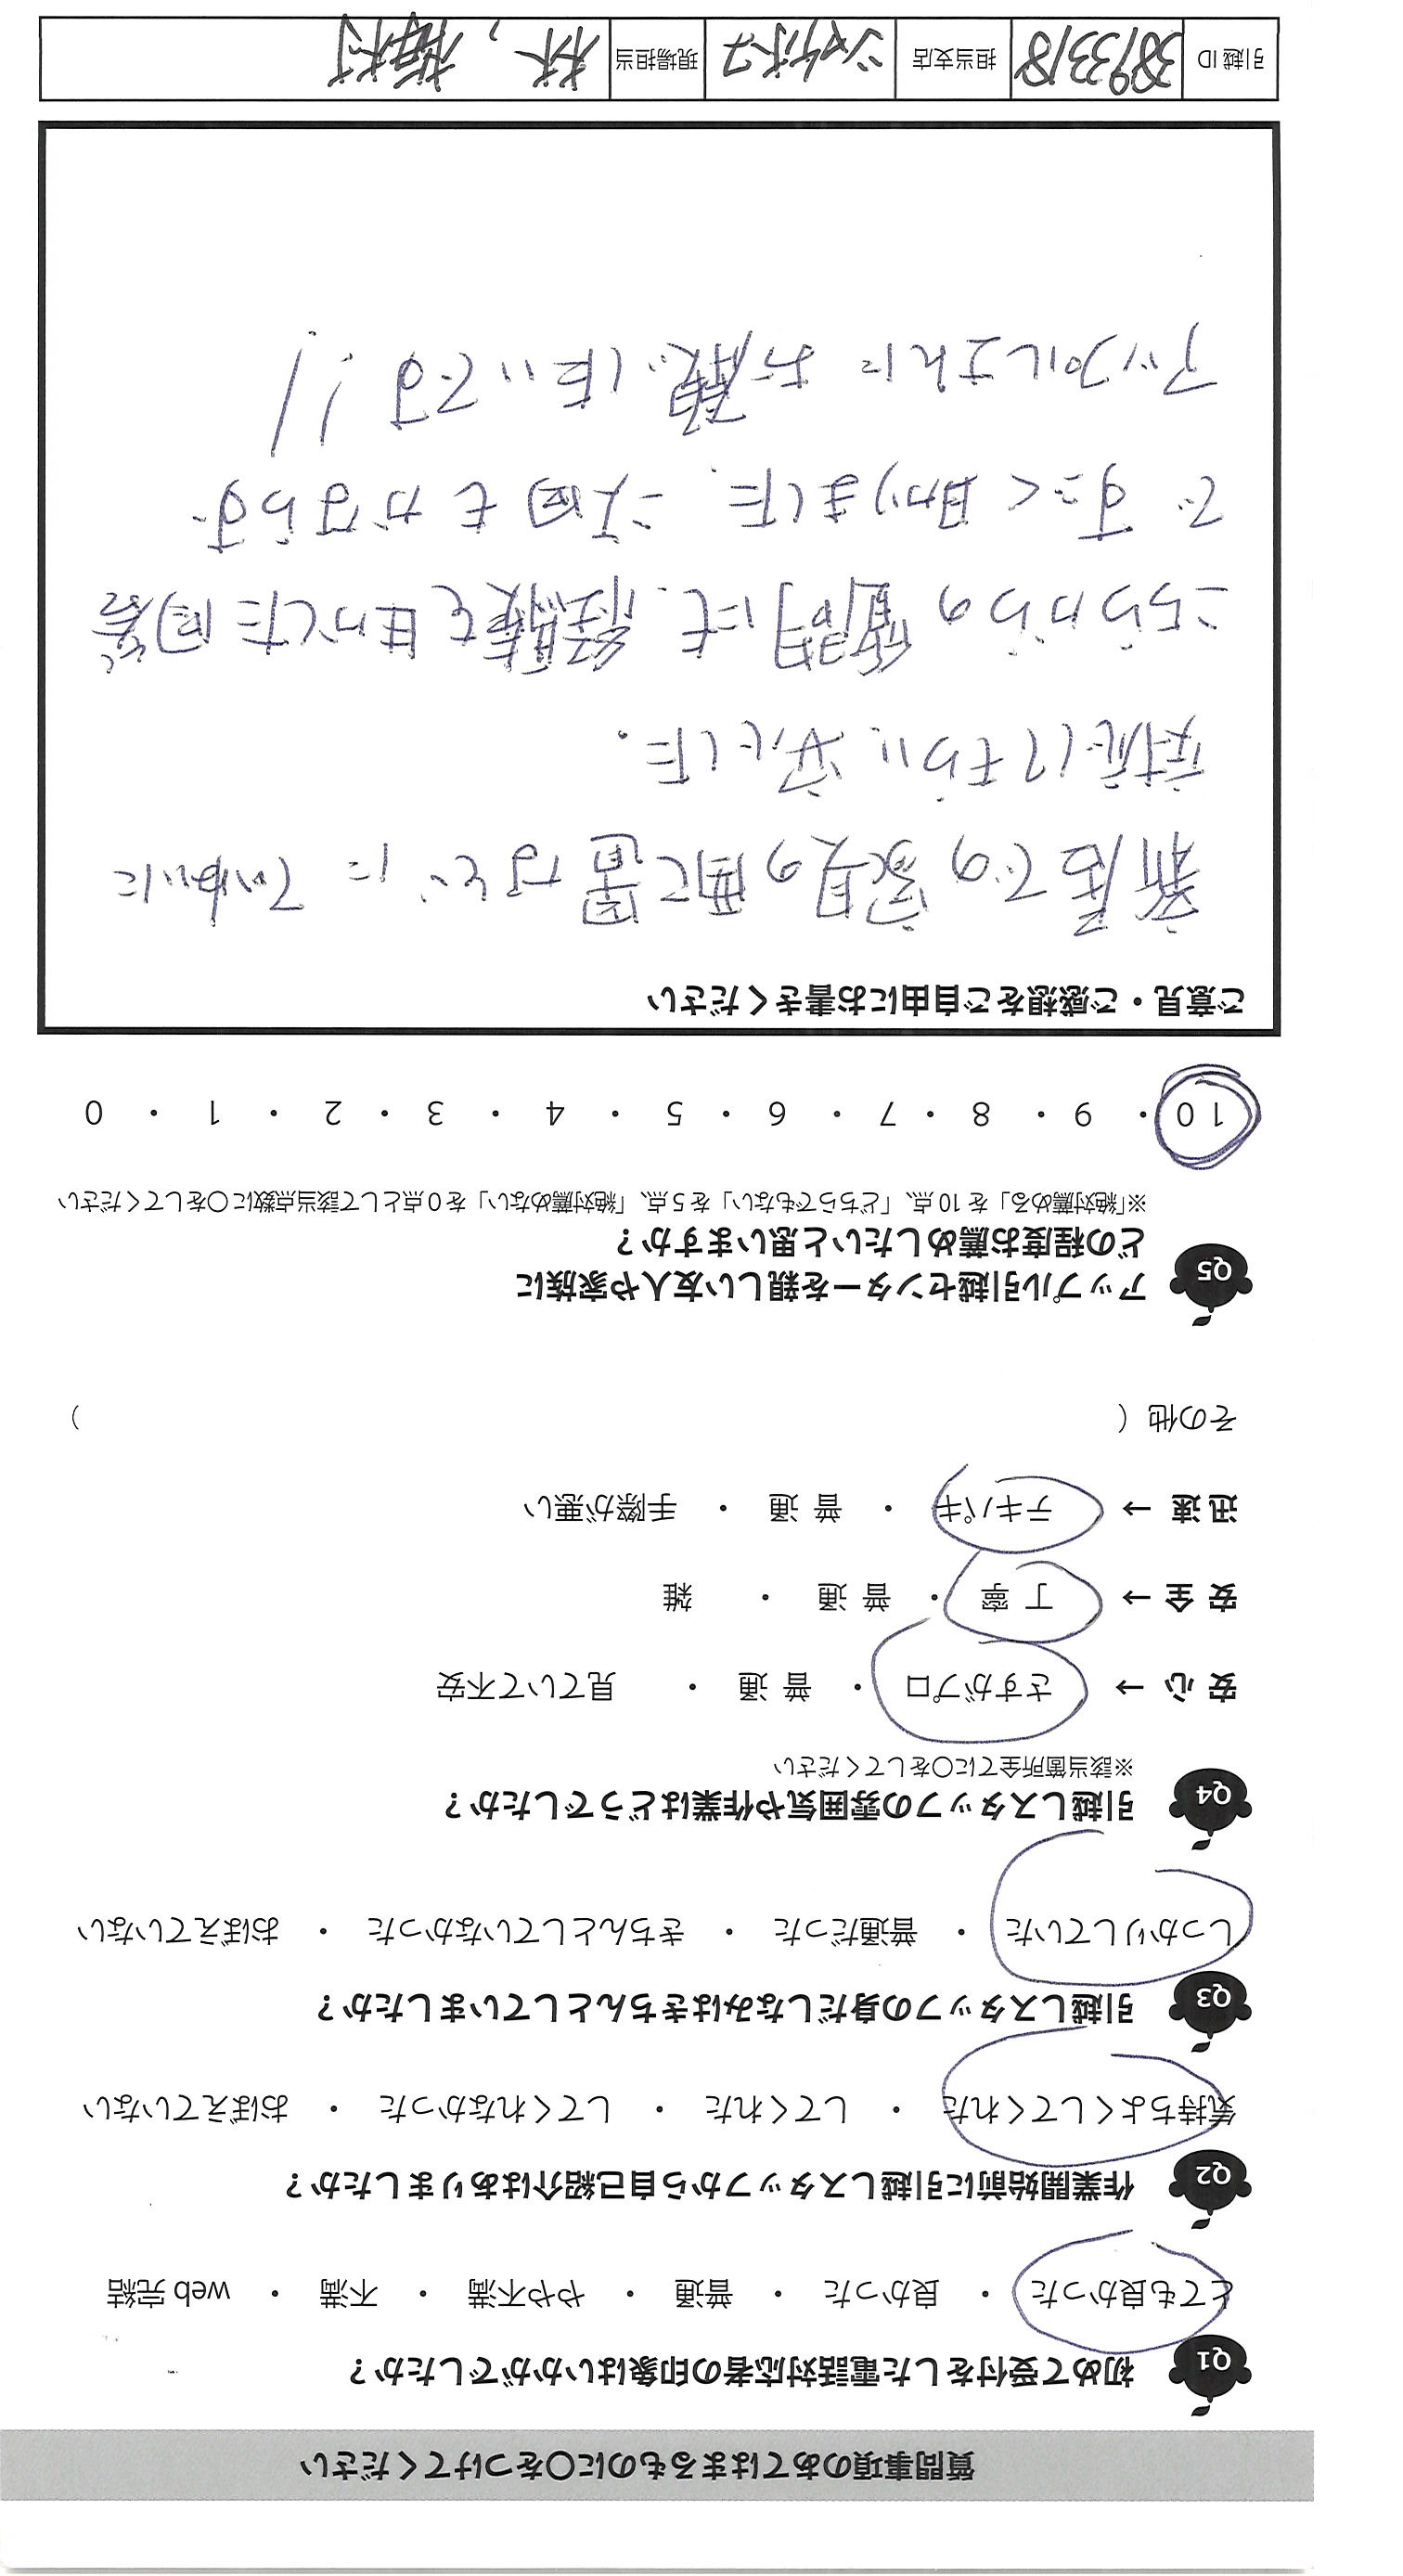 質問事項のあてはまるものに○をつけてください
Q1 初めて受付をした電話対応者の印象はいかがでしたか？
とても良かった ・ 良かった ・ 普通 ・ やや不満 ・ 不満 ・ web 完結
Q2 作業開始前に引越しスタッフから自己紹介はありましたか？
気持ちよくしてくれた ・ してくれた ・ してくれなかった ・ おぼえていない
Q3 引越しスタッフの身だしなみはきちんとしていましたか？
しっかりしていた ・ 普通だった ・ きちんとしていなかった ・ おぼえていない
Q4 引越しスタッフの雰囲気や作業はどうでしたか？
※該当箇所全てに○をしてください
安 心 → さすがプロ ・ 普 通 ・ 見ていて不安
安 全 → 丁 寧 ・ 普 通 ・ 雑
迅 速 → テキパキ ・ 普 通 ・ 手際が悪い
その他（ ）
Q5 アップル引越センターを親しい友人や家族に
どの程度お薦めしたいと思いますか？
※「絶対薦める」を 10 点、「どちらでもない」を 5 点、「絶対薦めない」を 0 点として該当点数に○をしてください
10 ・ 9 ・ 8 ・ 7 ・ 6 ・ 5 ・ 4 ・ 3 ・ 2 ・ 1 ・ 0
ご意見・ご感想をご自由にお書きください
新居での家具の配置などに ていねいに
対応してもらい、安心した。
こちらからの質問にも、経験を生かした回答
で すごく助かりました。 次回もかならず
アップルさんに お願いしたいです!!
引越 ID 3893318 担当支店 現場担当 林, 梅村